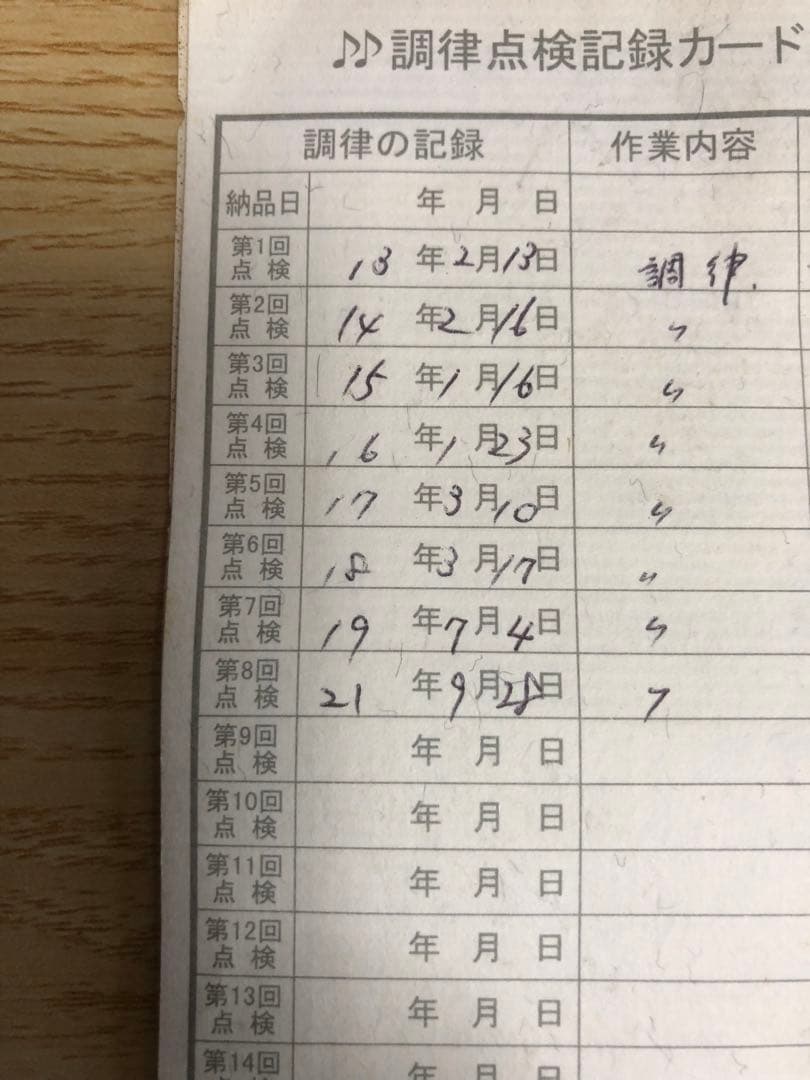 ♪♪調律点検記録カード
調律の記録 作業内容
納品日 年 月 日
第1回点検 13 年 2 月 13 日 調律.
第2回点検 14 年 2 月 16 日 〃
第3回点検 15 年 1 月 16 日 〃
第4回点検 16 年 1 月 23 日 〃
第5回点検 17 年 3 月 10 日 〃
第6回点検 18 年 3 月 17 日 〃
第7回点検 19 年 7 月 4 日 〃
第8回点検 21 年 9 月 28 日 〃
第9回点検 年 月 日
第10回点検 年 月 日
第11回点検 年 月 日
第12回点検 年 月 日
第13回点検 年 月 日
第14回 年 月 日